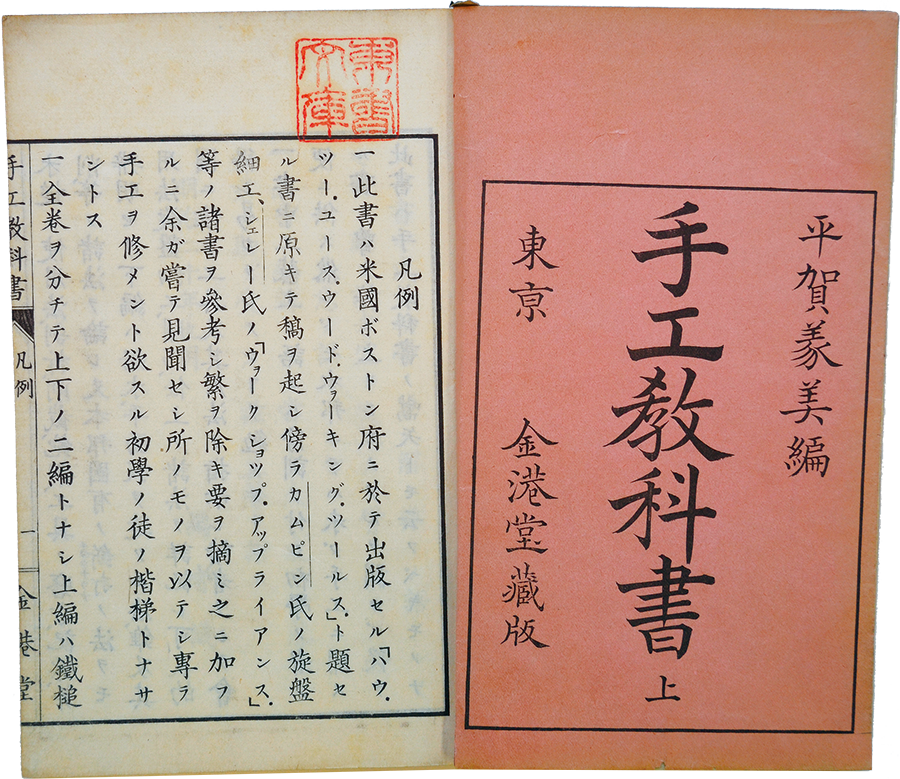 平賀義美編
手工教科書 上
東京 金港堂藏版
東書文庫
凡例
一此書ハ米國ボストン府ニ於テ出版セル「ハウ.
ツー.ユース.ウード.ウォーキング.ツールス.」ト題セ
ル書ニ原キテ稿ヲ起シ傍ラカムピン氏ノ旋盤
細工、シェレー氏ノ「ウォークショップ.アップライアンス.」
等ノ諸書ヲ參考シ繁ヲ除キ要ヲ摘ミ之ニ加フ
ルニ余ガ嘗テ見聞セシ所ノモノヲ以テシ專ラ
手工ヲ修メント欲スル初學ノ徒ノ楷梯トナサ
ントス
一全卷ヲ分チテ上下ノ二編トナシ上編ハ鐵槌
手工教科書 凡例 一 金港堂